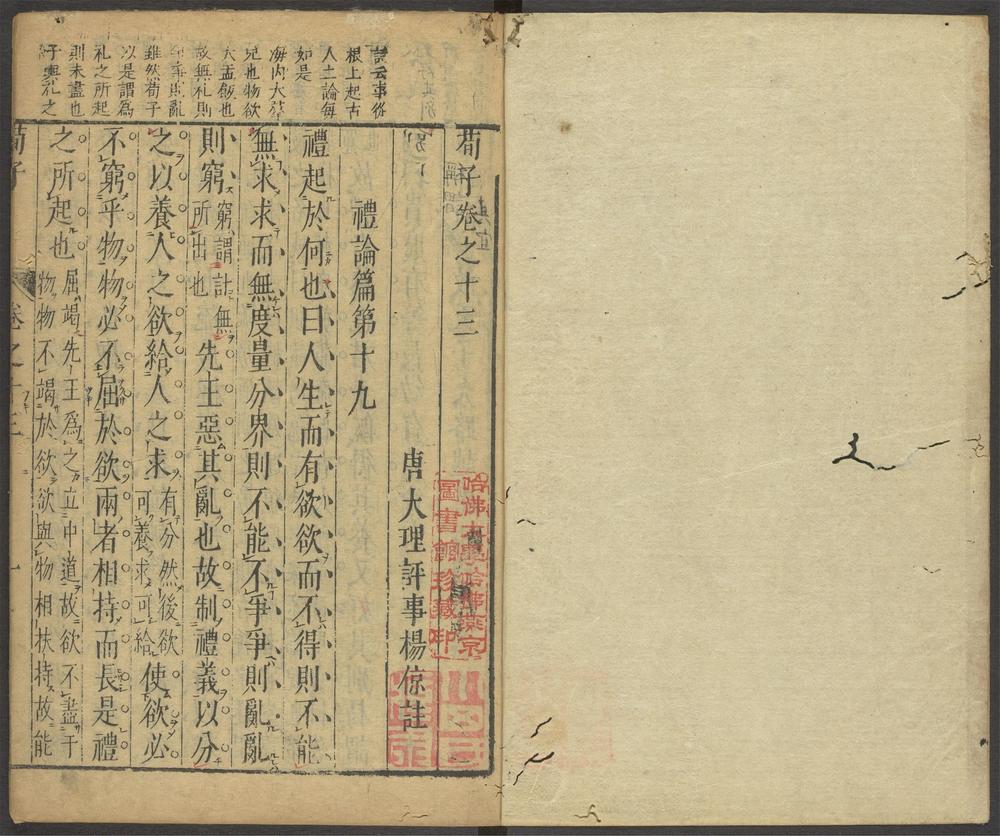 荀子卷之十三
唐大理評事楊倞註
禮論篇第十九
禮起於何也曰人生而有欲欲而不得則不能
無求求而無度量分界則不能不爭爭則亂亂
則窮窮謂計無所出也先王惡其亂也故制禮義以分
之以養人之欲給人之求有分然後欲可養求可給使欲必
不窮乎物物必不屈於欲兩者相持而長是禮
之所起也屈竭先王爲之立中道故欲不盡于物物不竭於欲欲與物相扶持故能
荀子
卷之十三
一
云事從
根上起古
人立論每
如是
海内大
兄也物欲
大孟飯也
故無礼則
則亂
雖然荀子
以是謂爲
礼之所起
則未盡也
于與礼之
哈佛大學哈佛燕京
圖書館珍藏印